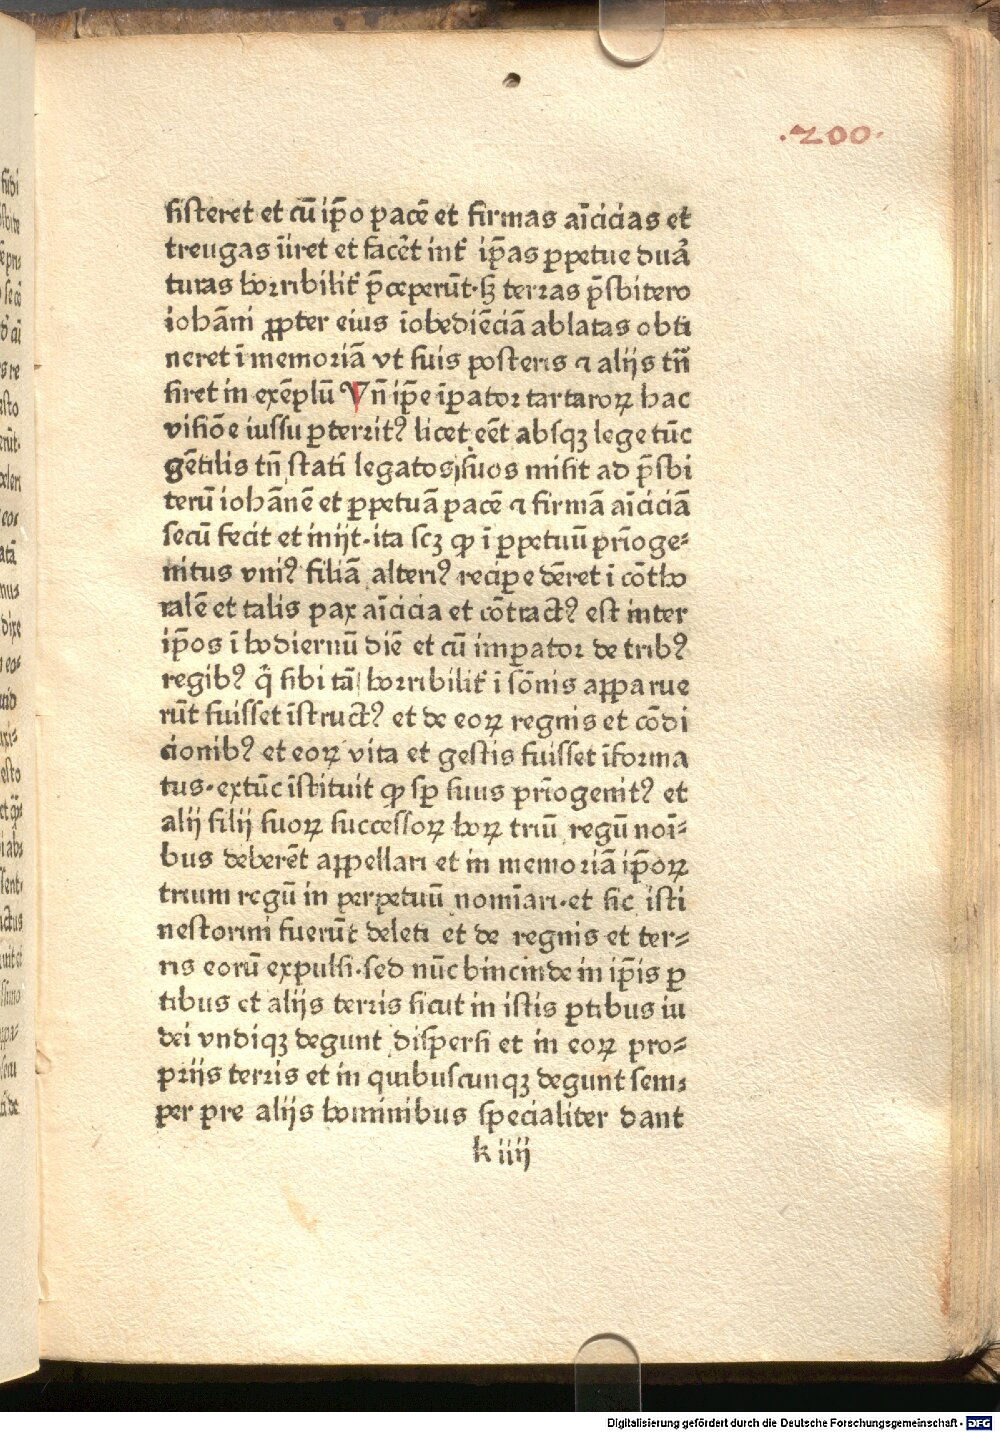 .200.
sisteret et cū ip̄o pacē et firmas aīcicias et
treugas iīret et facēt int̄ ip̄as ꝑpetue duāt
turas horribilit̄ p̄ceperūt·sꝫ terras p̄sbitero
iohāni ꝓpter eius īobediēciā ablatas obti
neret ī memoriā vt suis posteris ⁊ alijs tn̄
firet in exēplū Vn̄ ip̄e īꝑator tartaroꝝ hac
visiōe iussu ꝑterritꝰ licet eēt absqꝫ lege tūc
gētilis tn̄ statī legatos suos misit ad p̄sbi
terū iohānē et ꝑpetuā pacē ⁊ firmā aīciciā
secū fecit et inijt·ita scꝫ ꝙ ī ꝑpetuū prīoge⸗
nitus vniꝰ filiā alteriꝰ reciꝑe dēret ī cōtho
ralē et talis pax aīcicia et cōtractꝰ est inter
ip̄os ī hodiernū diē et cū imꝑator de tribꝰ
regibꝰ q̄ sibi tā horribilit̄ ī sōnis apparue
rūt fuisset īstructꝰ et de eoꝝ regnis et cōdi
cionibꝰ et eoꝝ vita et gestis fuisset īforma
tus·extūc īstituit ꝙ sꝑ suus prīogenitꝰ et
alij filij suoꝝ successoꝝ hoꝝ triū regū noī⸗
bus deberēt appellari et in memoriā ip̄oꝝ
trium regū in perpetuū nomīari·et sic isti
nestorini fuerūt deleti et de regnis et ter⸗
ris eorū expulsi·sed nūc hincinde in ip̄is ꝑ
tibus et alijs terris sicut in istis ꝑtibus iu
dei vndiqꝫ degunt dispersi et in eoꝝ pro⸗
prijs terris et in quibuscunqꝫ degunt sem⸗
per pre alijs hominibus specialiter dant
k iiij
Digitalisierung gefördert durch die Deutsche Forschungsgemeinschaft - DFG